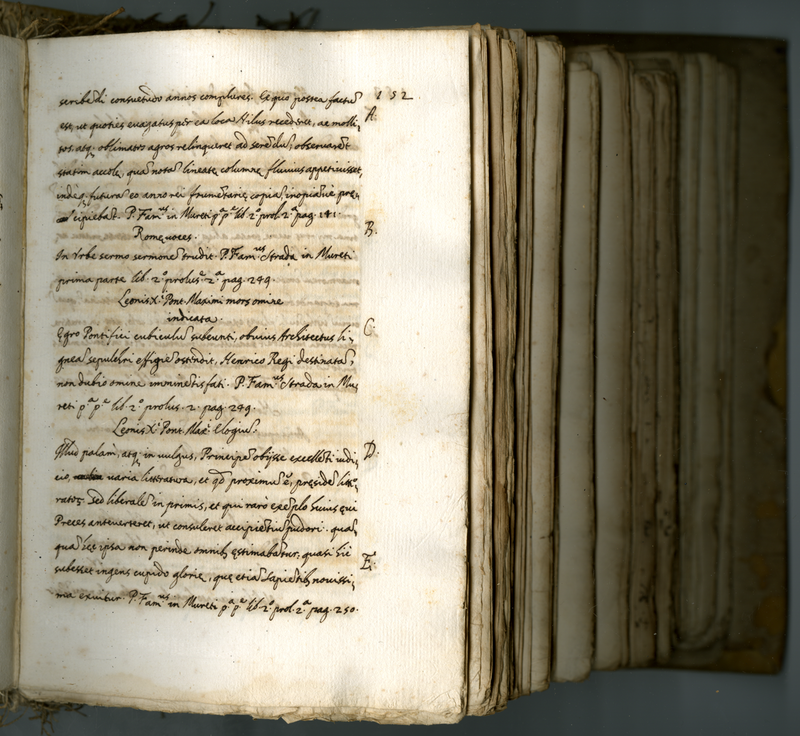 152
scribe͂di consuetudo annos complures. Ex quo postea factu͂
A.
est, ut quoties euagatus per ea loca Nilus recederet, ac molli,
tos, atq; oblimatos agros relinqueret ad sere͂du͂; obseruare͂t
statim accolę, qua͂ nota͂ lineatę columnę fluuius appetiuisset,
indeq; futura͂ eo anno rei frume͂tarię copia͂, inopia͂ue pre,
cipieba͂t. P. Fam.us in Mureti p.a p.e lib. 2.o prol. 2.a pag. 141.
Romę uoces.
B.
In Vrbe sermo sermone͂ trudit. P. Fam.us Strada in Mureti
prima parte lib. 2.o prolus.e 2.a pag. 249.
Leonis X.i Pont. Maximi mors omine
indicata.
C.
Ęgro Pontifici cubiculu͂ subeunti, obuius Architectus li,
gnea͂ sepulchri effigie͂ ostendit, Henrico Regi destinata͂,
non dubio omine immine͂tis fati. P. Fam.us Strada in Mu,
reti p.a p.e lib. 2.o prolus. 2. pag. 249.
Leonis X.i Pont. Max.i Elogiu͂.
D.
Illud palam, atq; in uulgus, Principe͂ obijsse excelle͂ti iudi,
cio, uaria litteratura, et qd proximu͂ e͂, pręside͂ litt.o
ratoꝝ. Sed liberale͂ in primis, et qui raro exe͂plo huius qui
Preces anteuerteret, ut consuleret accipie͂tiu͂ pudori. qua͂,
qua͂ hęc ipsa non perinde omnib; ęstimaba͂tur; quasi hic
E.
subesset ingens cupido glorię, quę etia͂ sapie͂tib; nouissi,
ma exuitur. P. Fam.us in Mureti p.a p.e lib. 2.o prol. 2.a pag. 250.